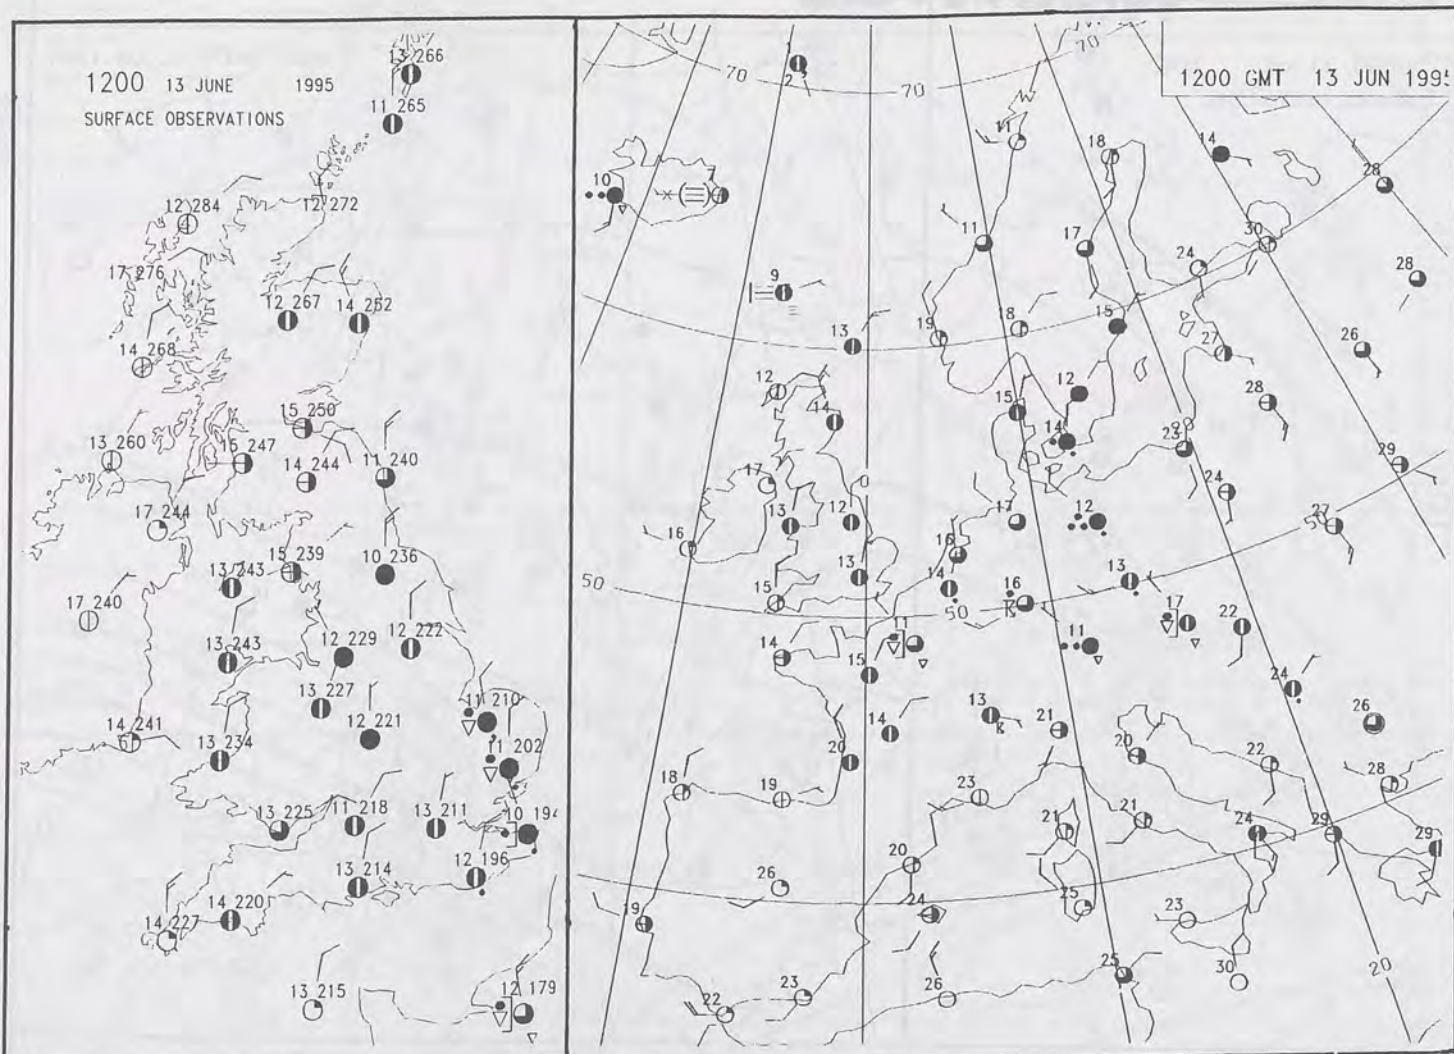 1200 13 JUNE 1995
SURFACE OBSERVATIONS
13 266
11 265
12 284
12 272
17 276
12 267
14 252
14 268
15 250
13 260
15 247
14 244
11 240
17 244
15 239
13 243
10 236
17 240
13 243
12 229
12 222
13 227
11 210
14 241
13 234
12 221
11 202
13 225
11 218
13 211
10 194
12 196
13 214
14 220
14 227
13 215
12 179
1200 GMT 13 JUN 1995
70
70
70
1
2
11
18
14
28
10
7
11
17
30
24
28
9
13
19
18
15
27
26
12
14
15
12
14
28
23
29
17
0
24
16
13
12
17
12
27
50
16
15
13
14
16
13
50
50
17
22
14
15
11
11
24
14
13
21
26
20
20
22
18
19
23
28
21
21
24
29
29
26
20
19
24
25
23
20
25
22
23
26
30